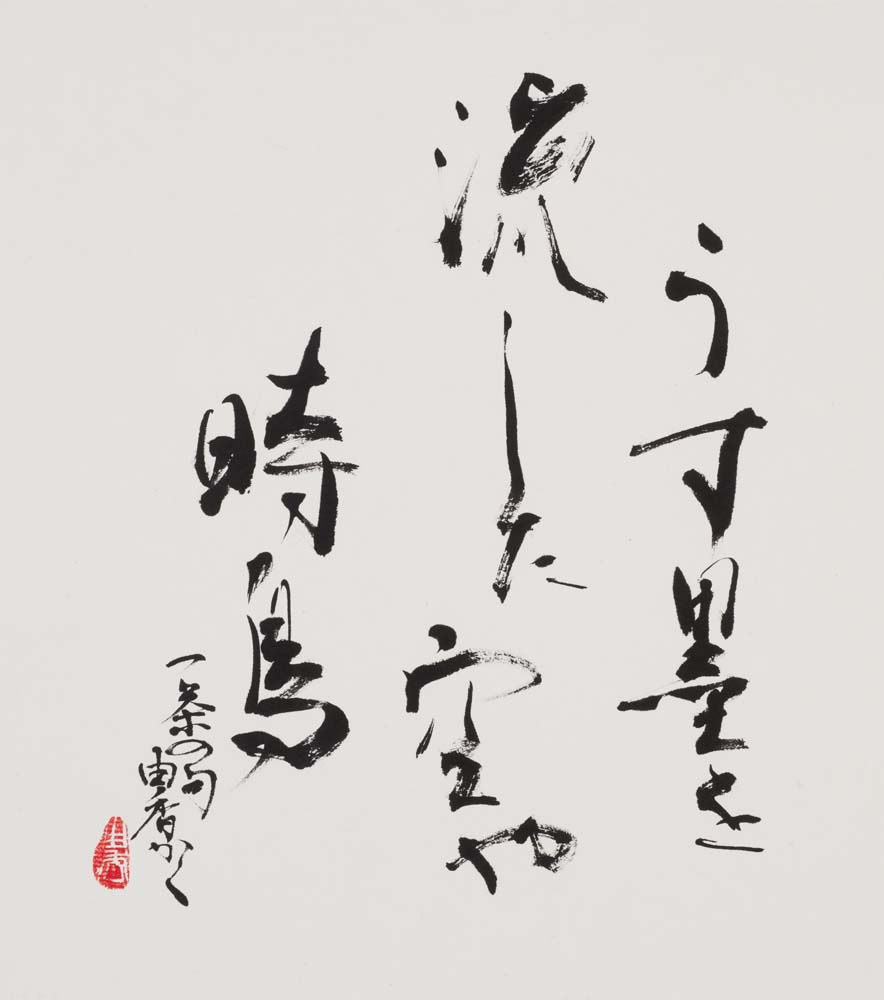 うす墨を
流した空や
時鳥
一茶の句
由香かく